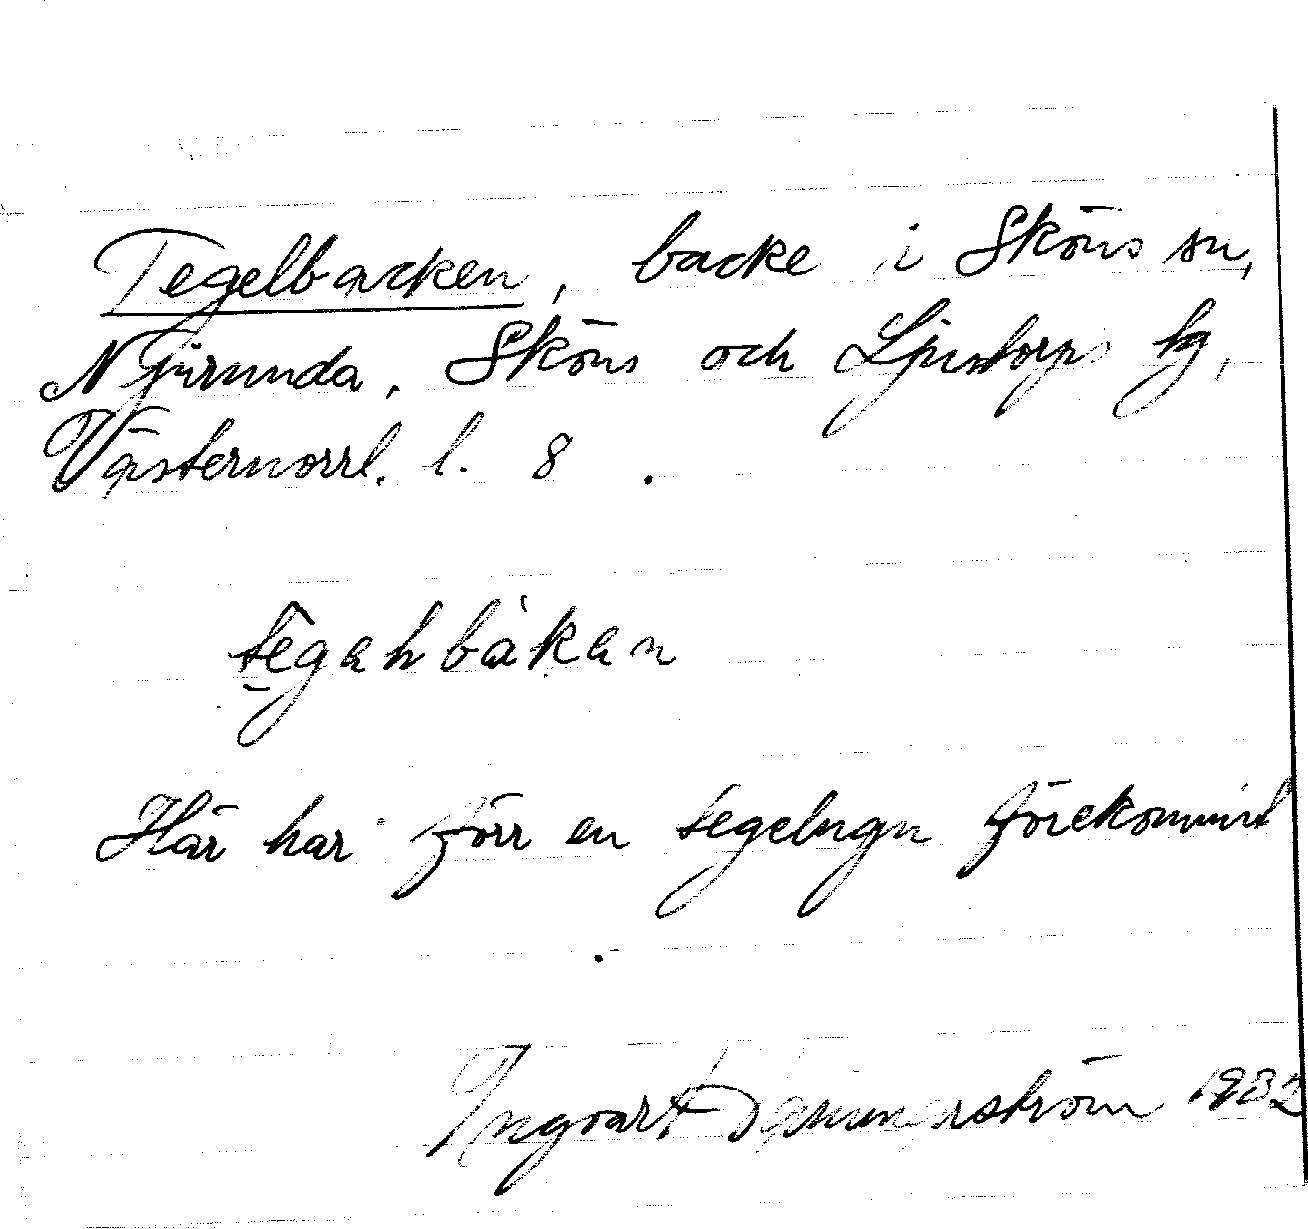 Tegelbacken, backe i Sköns sn,
Njurunda, Sköns och Ljustorps tg,
Västernorrl. l. 8.
Här har förr en tegelugn förekommit
Ingvart 1932